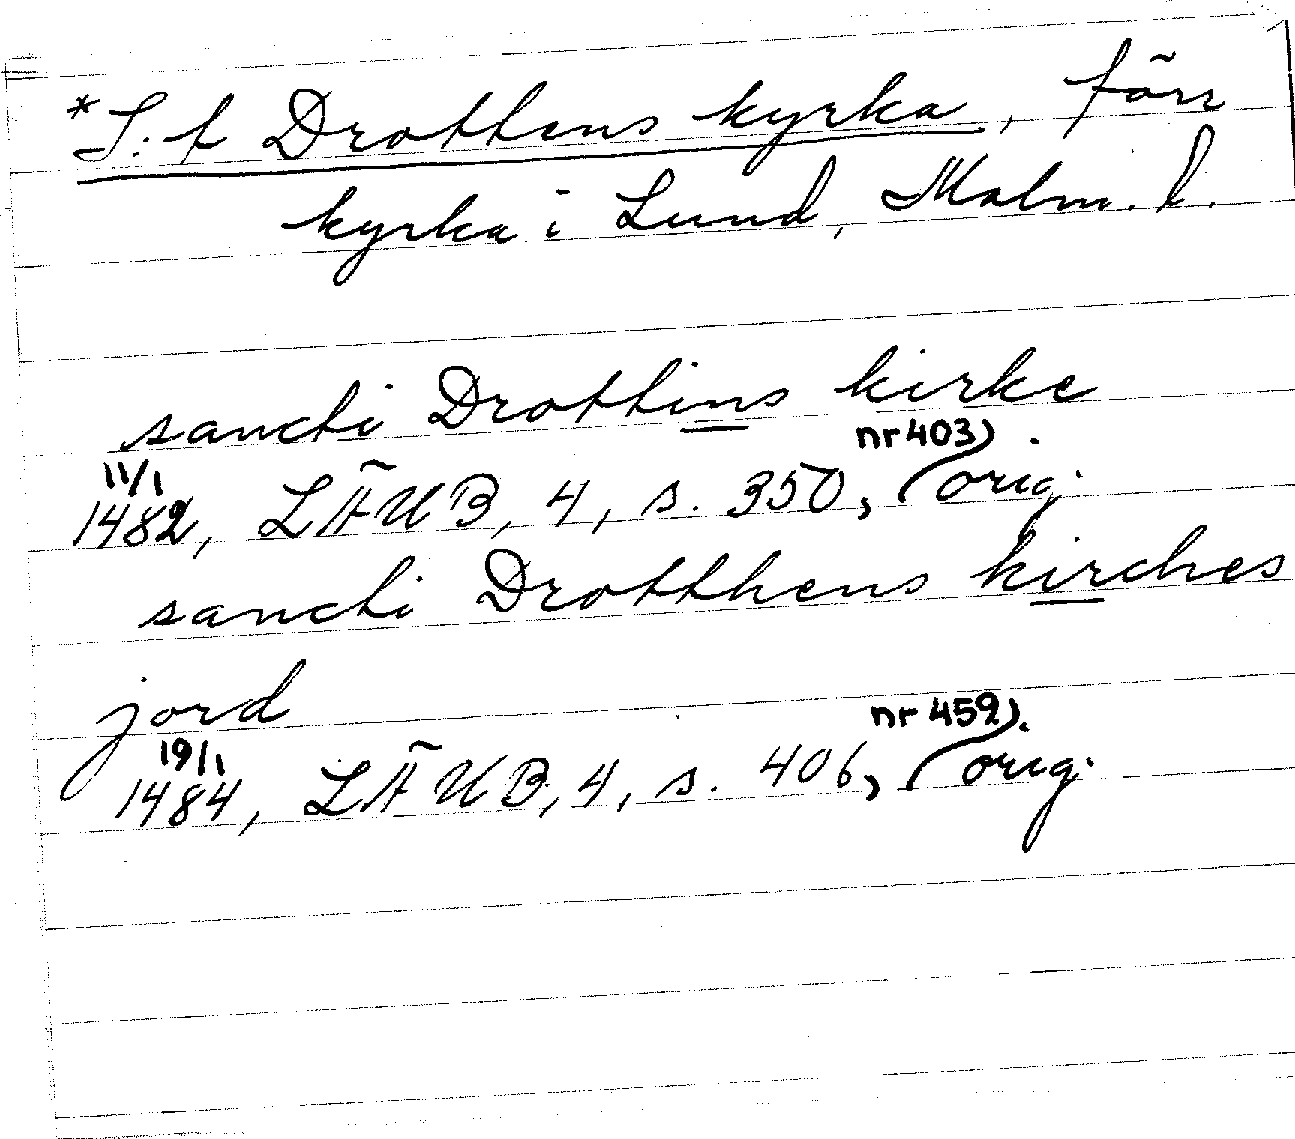 *S:t Drottens kyrka, förr
kyrka i Lund, Malm. l.
sancti Drottins kirke
11/1 nr 403).
1482, LÄUB, 4, s. 350, (orig.
sancti Drotthens kirches
jord
19/1 nr 459).
1484, LÄUB, 4, s. 406, (orig.